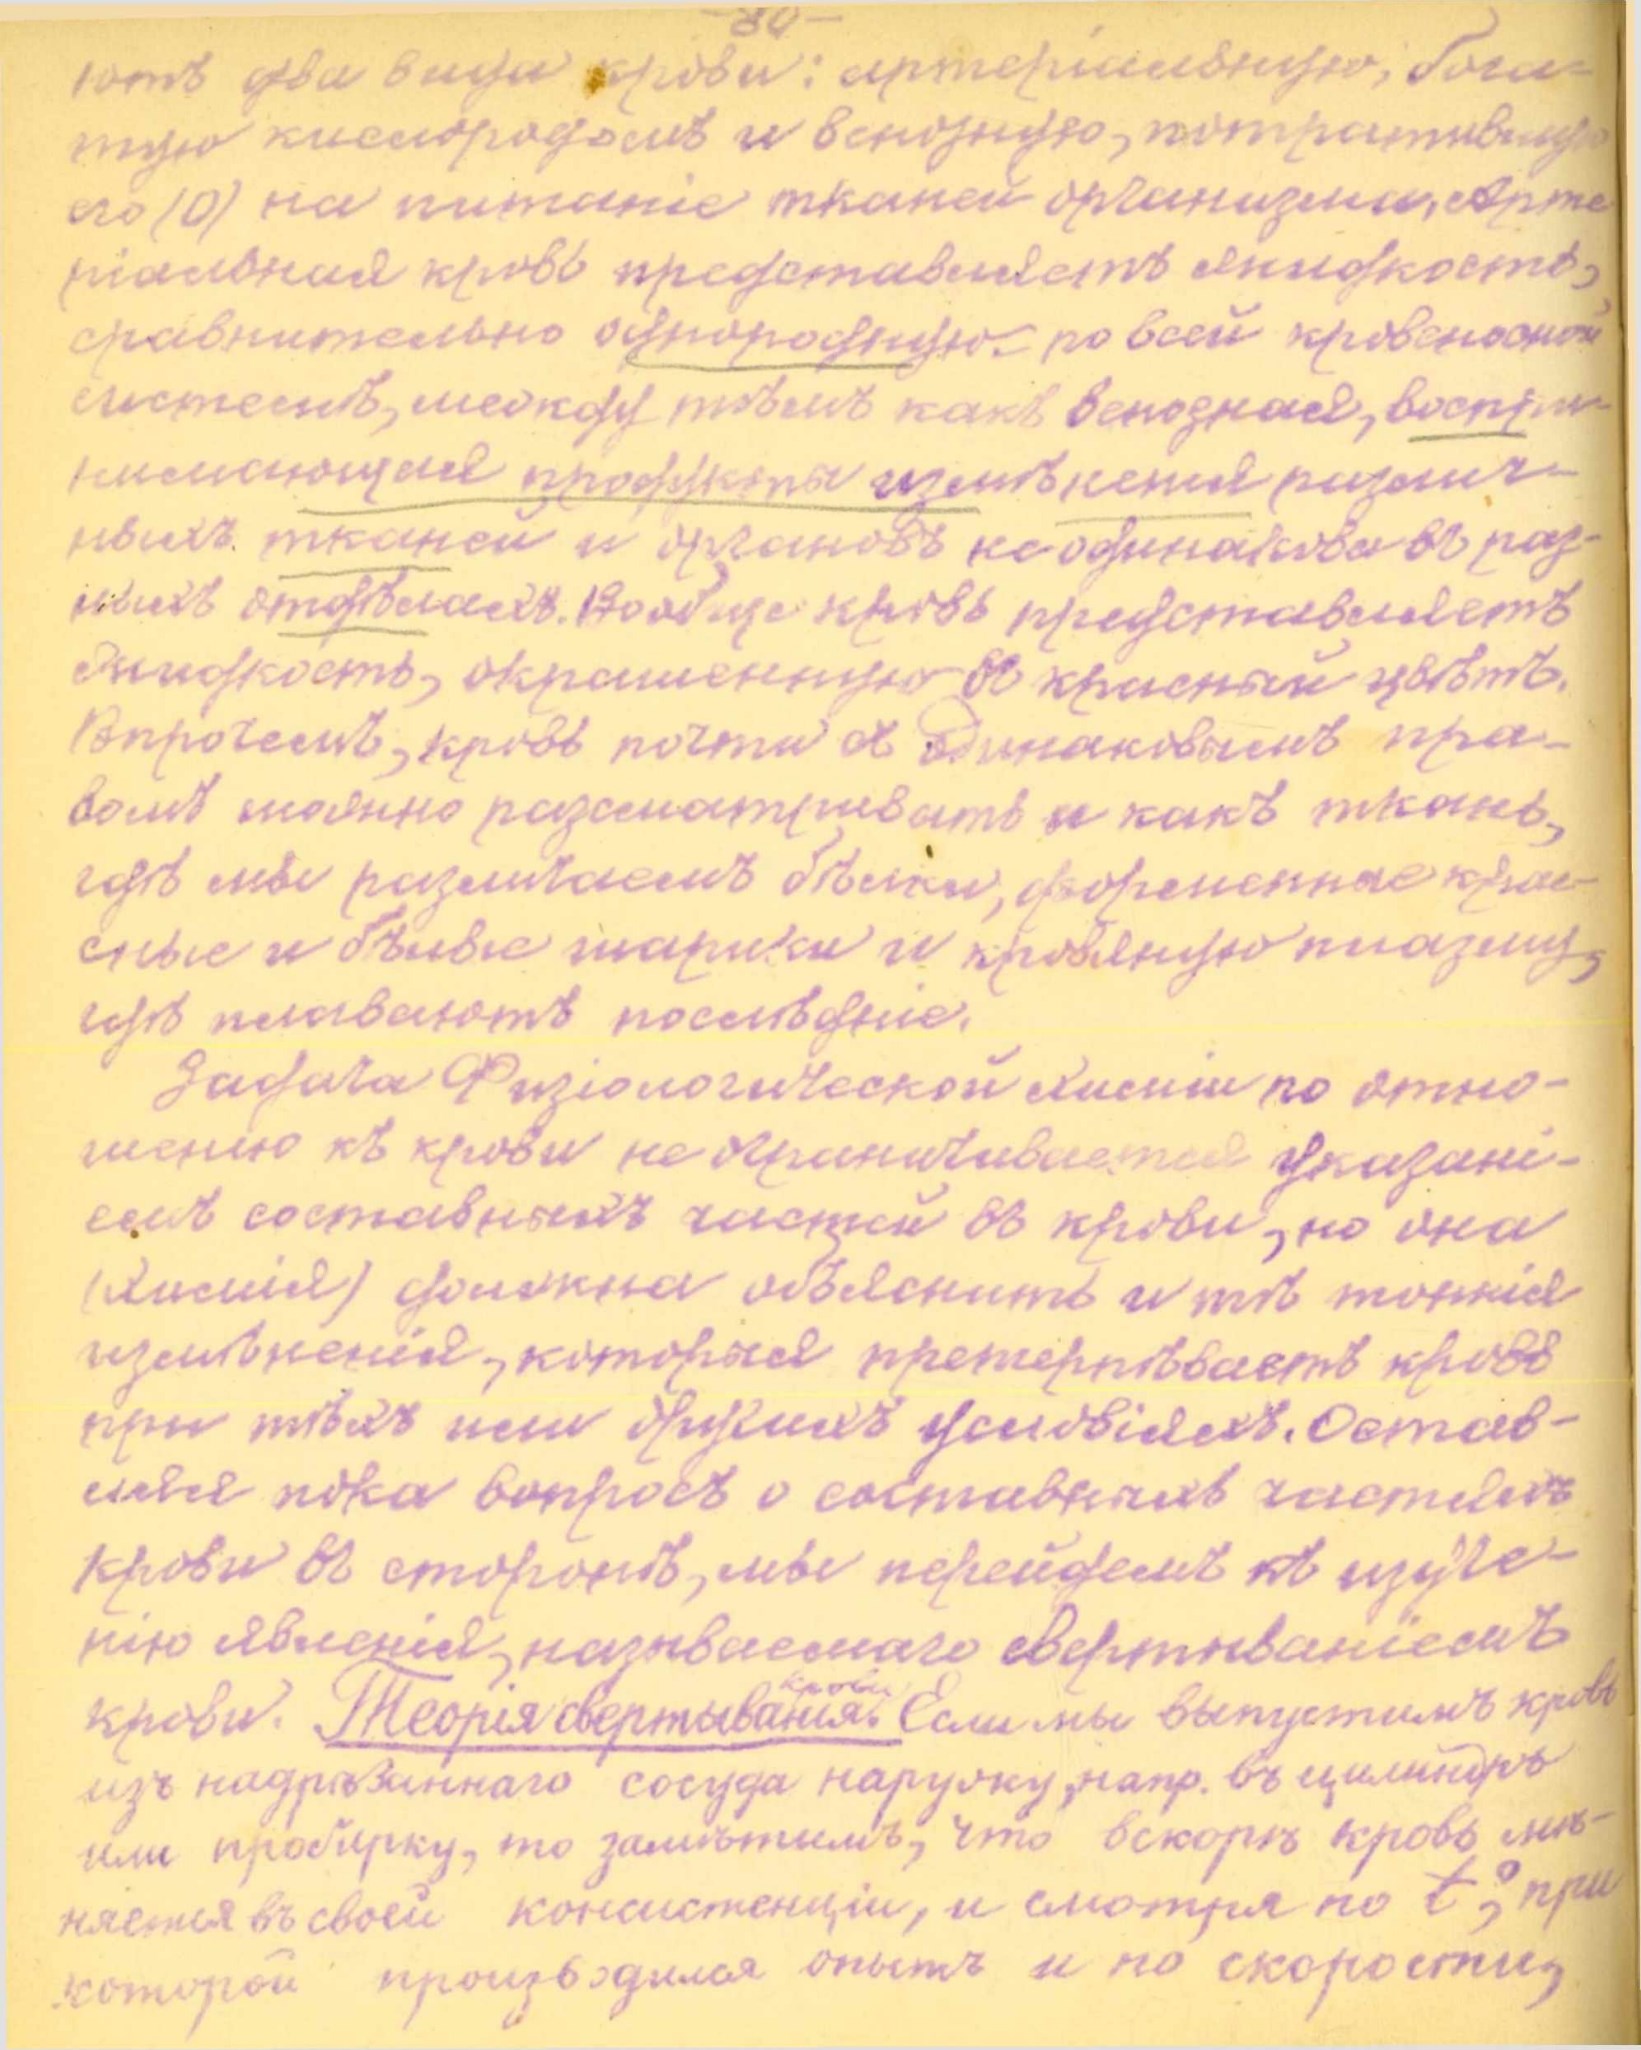 -80-
ютъ два вида крови: артеріальную, бога-
тую кислородомъ и венозную, потратившую
его (O) на питаніе тканей организма. Арте
ріальная кровь представляетъ жидкость,
сравнительно однородную по всей кровеносной
системѣ, между тѣмъ какъ венозная, воспри-
нимающая продукты измѣненія различ-
ныхъ тканей и органовъ не одинакова въ раз-
ныхъ отдѣлахъ. Вообще кровь представляетъ
жидкость, окрашенную въ красный цвѣтъ.
Впрочемъ, кровь почти съ одинаковымъ пра-
вомъ можно разсматривать и какъ ткань,
гдѣ мы различаемъ бѣлки, форменные крас-
сные и бѣлые шарики и кровяную плазму,
гдѣ плаваютъ послѣдніе.
Задача Физіологической химіи по отно-
шенію къ крови не ограничивается указані-
емъ составныхъ частей въ крови, но она
(химія) должна объяснить и тѣ тонкія
измѣненія, которыя претерпѣваетъ кровь
при тѣхъ или другихъ условіяхъ. Остав-
ляя пока вопросъ о составныхъ частяхъ
крови въ сторонѣ, мы перейдемъ къ изуче-
нію явленія, называемаго свертываніемъ
крови. Теорія свертыванія крови. Если мы выпустимъ кровь
изъ надрѣзаннаго сосуда наружу, напр. въ цилиндръ
или пробирку, то замѣтимъ, что вскорѣ кровь мѣ-
няется въ своей консистенціи, и смотря по t°, при
которой производился опытъ и по скорости,